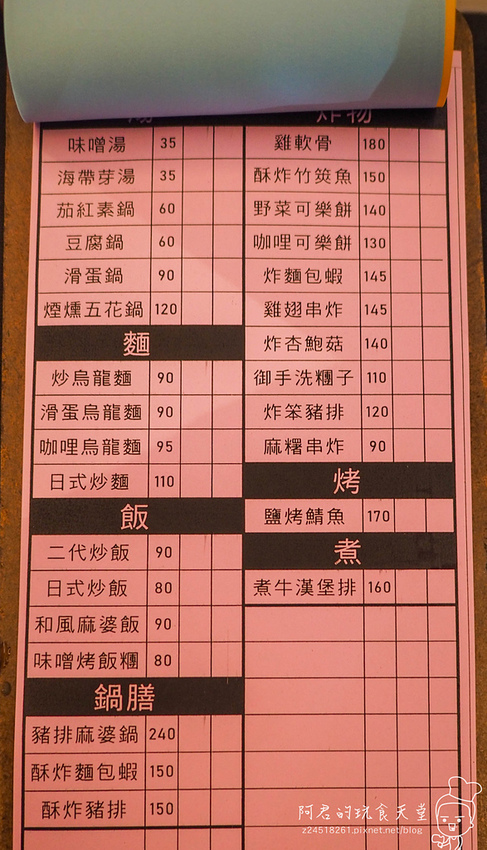 湯
味噌湯 35
海帶芽湯 35
茄紅素鍋 60
豆腐鍋 60
滑蛋鍋 90
煙燻五花鍋 120
麵
炒烏龍麵 90
滑蛋烏龍麵 90
咖哩烏龍麵 95
日式炒麵 110
飯
二代炒飯 90
日式炒飯 80
和風麻婆飯 90
味噌烤飯糰 80
鍋膳
豬排麻婆鍋 240
酥炸麵包蝦 150
酥炸豬排 150
炸物
雞軟骨 180
酥炸竹筴魚 150
野菜可樂餅 140
咖哩可樂餅 130
炸麵包蝦 145
雞翅串炸 145
炸杏鮑菇 140
御手洗糰子 110
炸笨豬排 120
麻糬串炸 90
烤
鹽烤鯖魚 170
煮
煮牛漢堡排 160
阿君的玩食天堂
z24518261.pixnet.net/blog